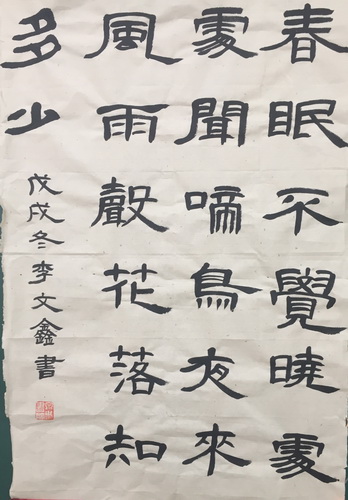 春眠不覺曉處
處聞啼鳥夜來
風雨聲花落知
多少
戊戌冬李文鑫書